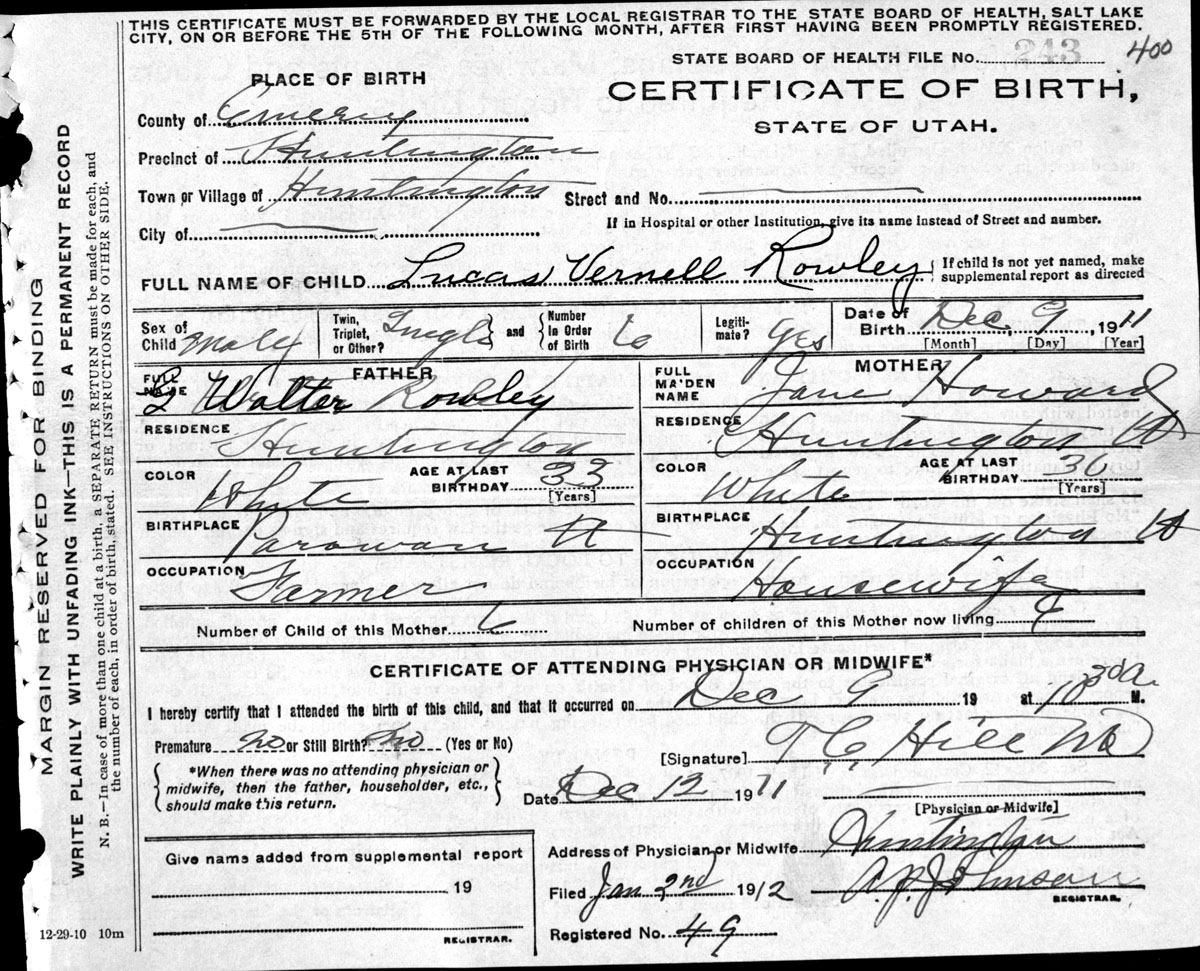 THIS CERTIFICATE MUST BE FORWARDED BY THE LOCAL REGISTRAR TO THE STATE BOARD OF HEALTH, SALT LAKE
CITY, ON OR BEFORE THE 5TH OF THE FOLLOWING MONTH, AFTER FIRST HAVING BEEN PROMPTLY REGISTERED.
STATE BOARD OF HEALTH FILE No. 243 400
PLACE OF BIRTH
CERTIFICATE OF BIRTH,
STATE OF UTAH.
County of Emery
Precinct of Huntington
Town or Village of Huntington
Street and No.
If in Hospital or other Institution, give its name instead of Street and number.
City of
FULL NAME OF CHILD Lucas Vernell Rowley
If child is not yet named, make
supplemental report as directed
Sex of
Child Maly
Twin,
Triplet,
or Other? Single
and
Number
in Order
of Birth 6
Legiti-
mate? Yes
Date of
Birth Dec. 9 1911
[Month] [Day] [Year]
FATHER
FULL
NAME
L Walter Rowley
MOTHER
FULL
MA'DEN
NAME Jane Howard
RESIDENCE Huntington
RESIDENCE Huntington Ut
COLOR White
AGE AT LAST
BIRTHDAY 33
[Years]
COLOR White
AGE AT LAST
BIRTHDAY 31
[Years]
BIRTHPLACE Parowan Ut
BIRTHPLACE Huntington Ut
OCCUPATION Farmer
OCCUPATION Housewife
Number of Child of this Mother 6
Number of children of this Mother now living
CERTIFICATE OF ATTENDING PHYSICIAN OR MIDWIFE*
I hereby certify that I attended the birth of this child, and that it occurred on Dec 9 19 at 10 30 a. M.
Premature no or Still Birth? no (Yes or No)
[Signature] T. C. Hill MD
*When there was no attending physician or
midwife, then the father, householder, etc.,
should make this return.
Date Dec 12 1911
[Physician or Midwife]
Address of Physician or Midwife Huntington
Give name added from supplemental report
19
REGISTRAR.
Filed Jan 2nd 1912
Johnson
REGISTRAR.
Registered No. 49
12-29-10 10m
MARGIN RESERVED FOR BINDING
WRITE PLAINLY WITH UNFADING INK—THIS IS A PERMANENT RECORD
N. B.—In case of more than one child at a birth, a SEPARATE RETURN must be made for each, and
the number of each, in order of birth, stated. SEE INSTRUCTIONS ON OTHER SIDE.